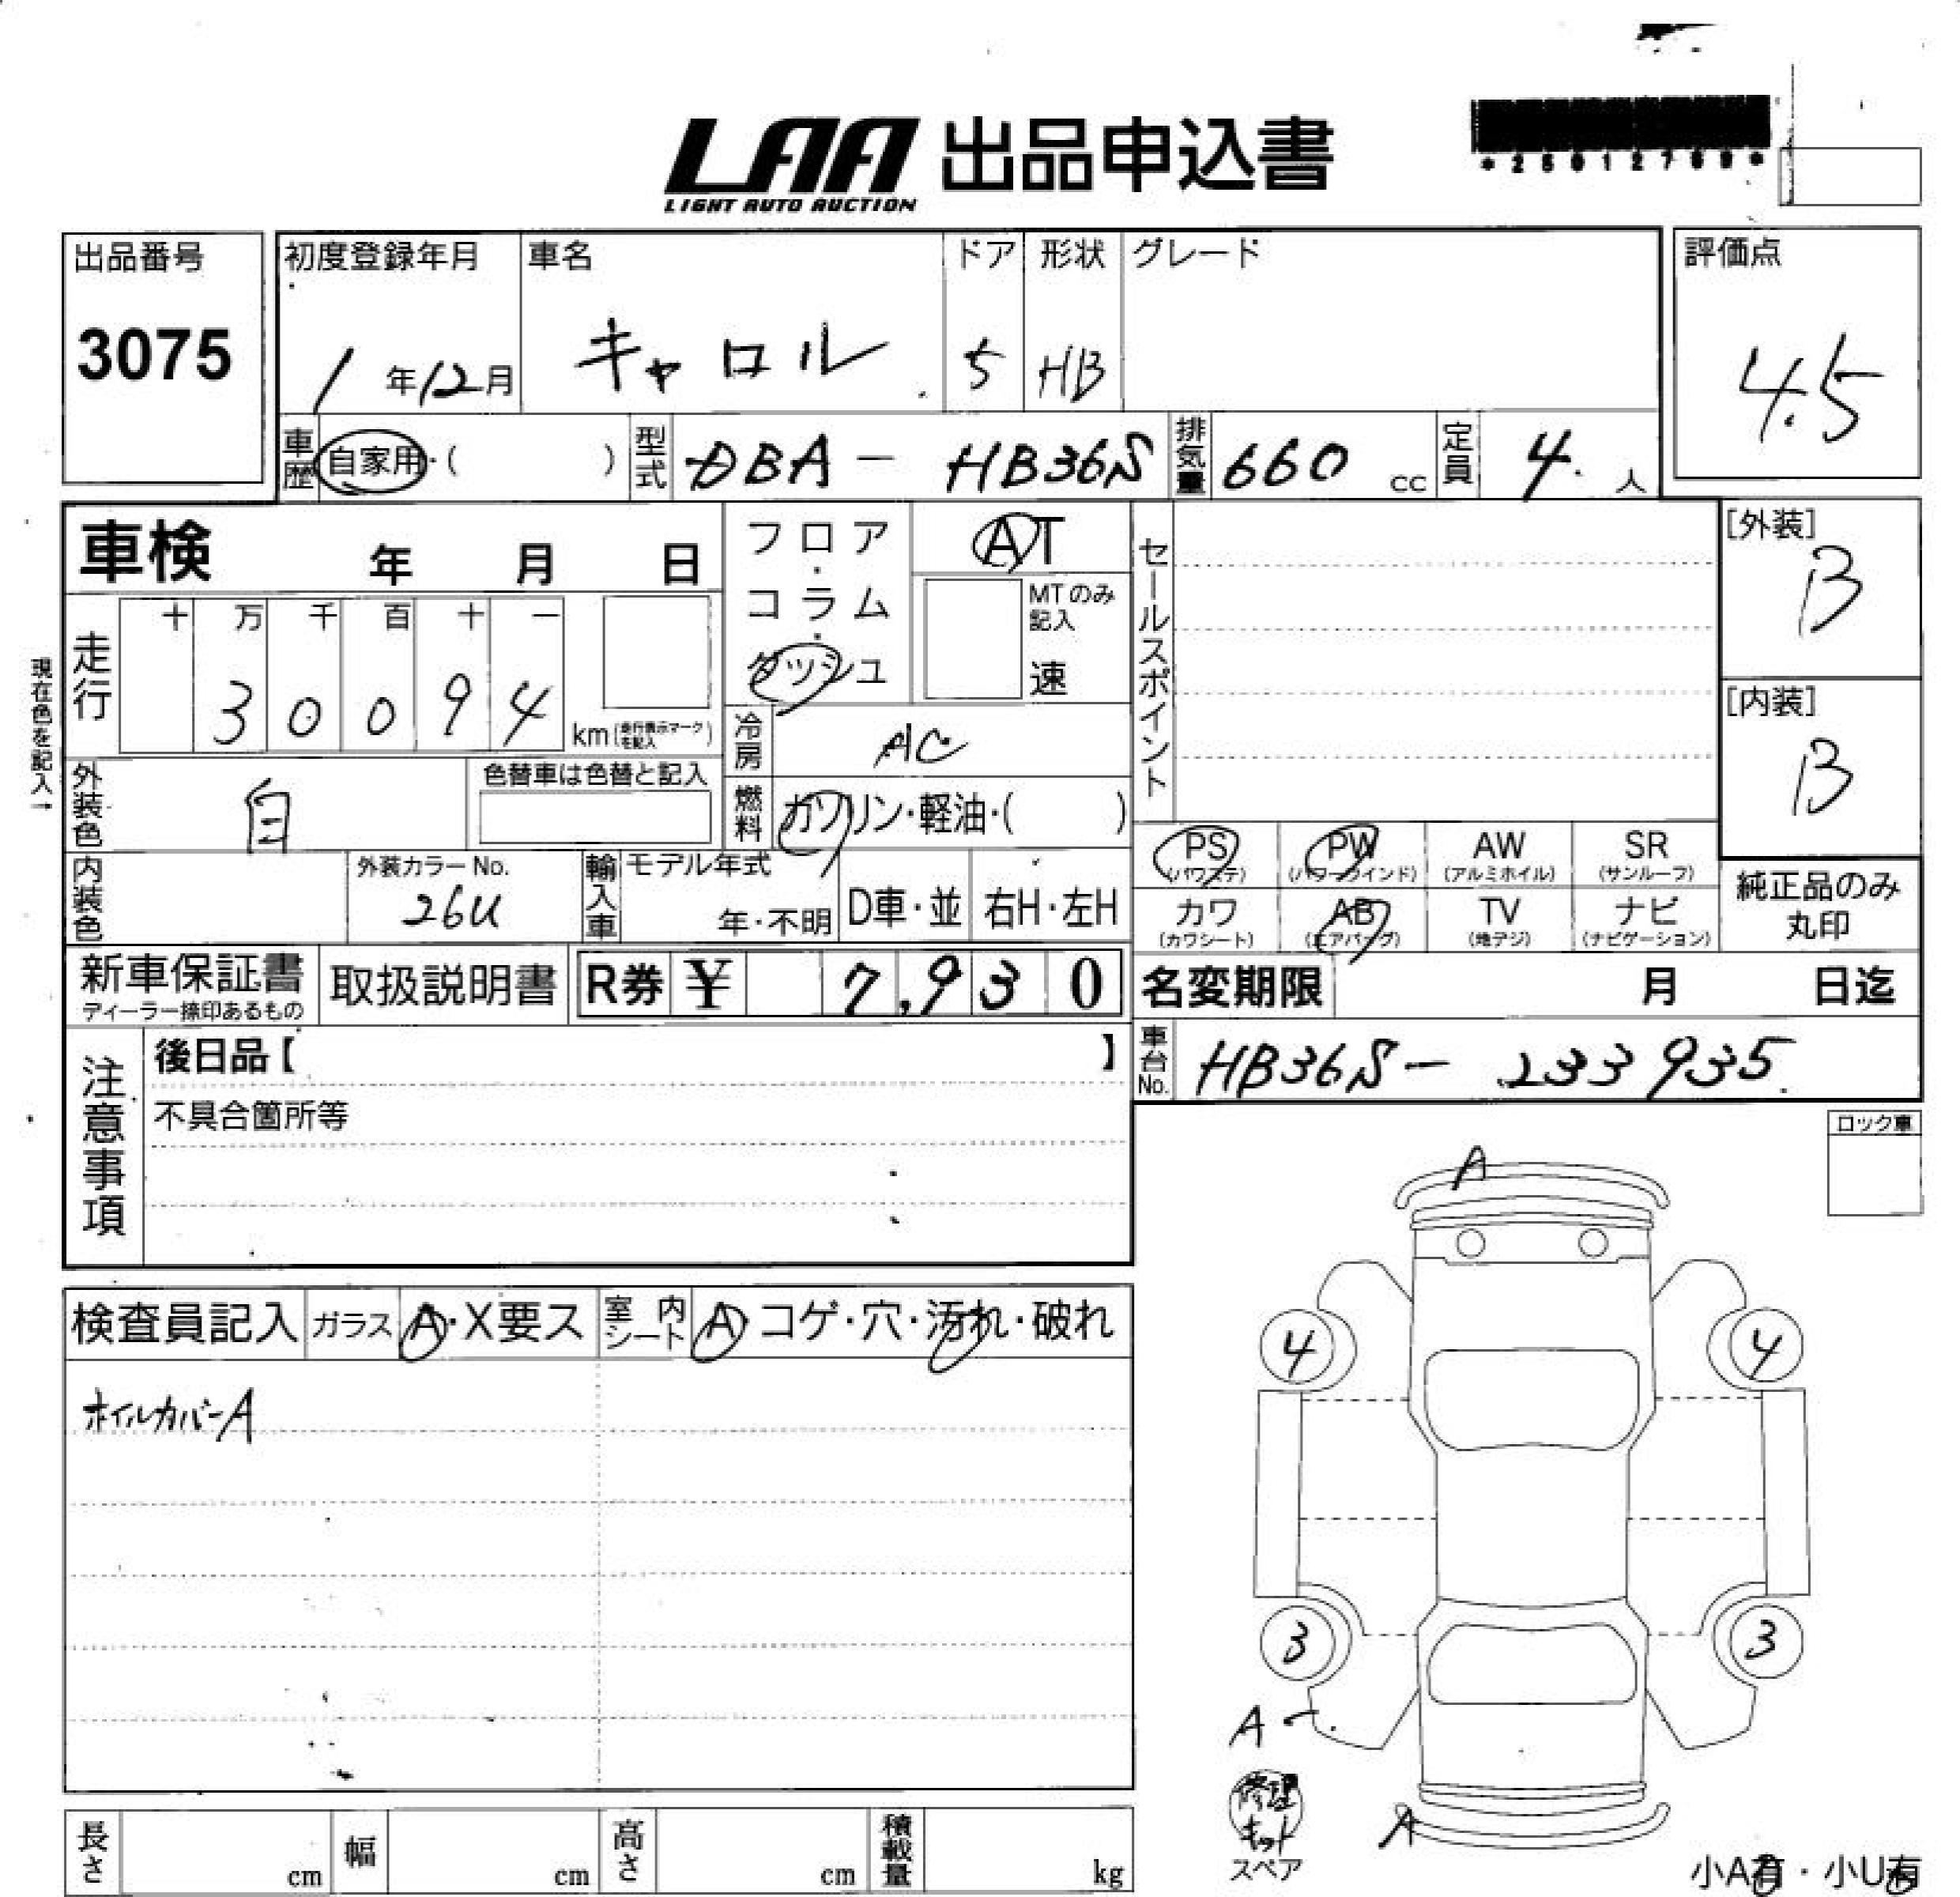 LAA 出品申込書
LIGHT AUTO AUCTION
出品番号 初度登録年月 車名 ドア 形状 グレード 評価点
3075 1年12月 キャロル 5 HB 4.5
車歴 自家用・( ) 型式 DBA - HB36S 排気量 660 cc 定員 4 人
車検 年 月 日
フロア・コラム・ダッシュ
AT
MTのみ記入
速
セールスポイント
[外装]
B
[内装]
B
現在色を記入→
走行 十 万 千 百 十 一
3 0 0 9 4 km(走行表示マークを記入)
冷房 AC
外装色 白 色替車は色替と記入
燃料 ガソリン・軽油・( )
PS (パワステ) PW (パワーウインド) AW (アルミホイル) SR (サンルーフ)
カワ (カワシート) AB (エアバッグ) TV (地デジ) ナビ (ナビゲーション)
純正品のみ
丸印
内装色 外装カラーNo. 26U
輸入車 モデル年式 年・不明 D車・並 右H・左H
新車保証書 ディーラー捺印あるもの 取扱説明書 R券 ¥ 7,930
名変期限 月 日迄
注意事項 後日品【 】
不具合箇所等
車台No. HB36S - 233935
ロック車
A
検査員記入 ガラス A・X要ス 室内シート A・コゲ・穴・汚れ・破れ
ホイルカバーA
4 4
3 3
A
修理
キット
スペア
A
長さ cm 幅 cm 高さ cm 積載量 kg
小A有・小U有